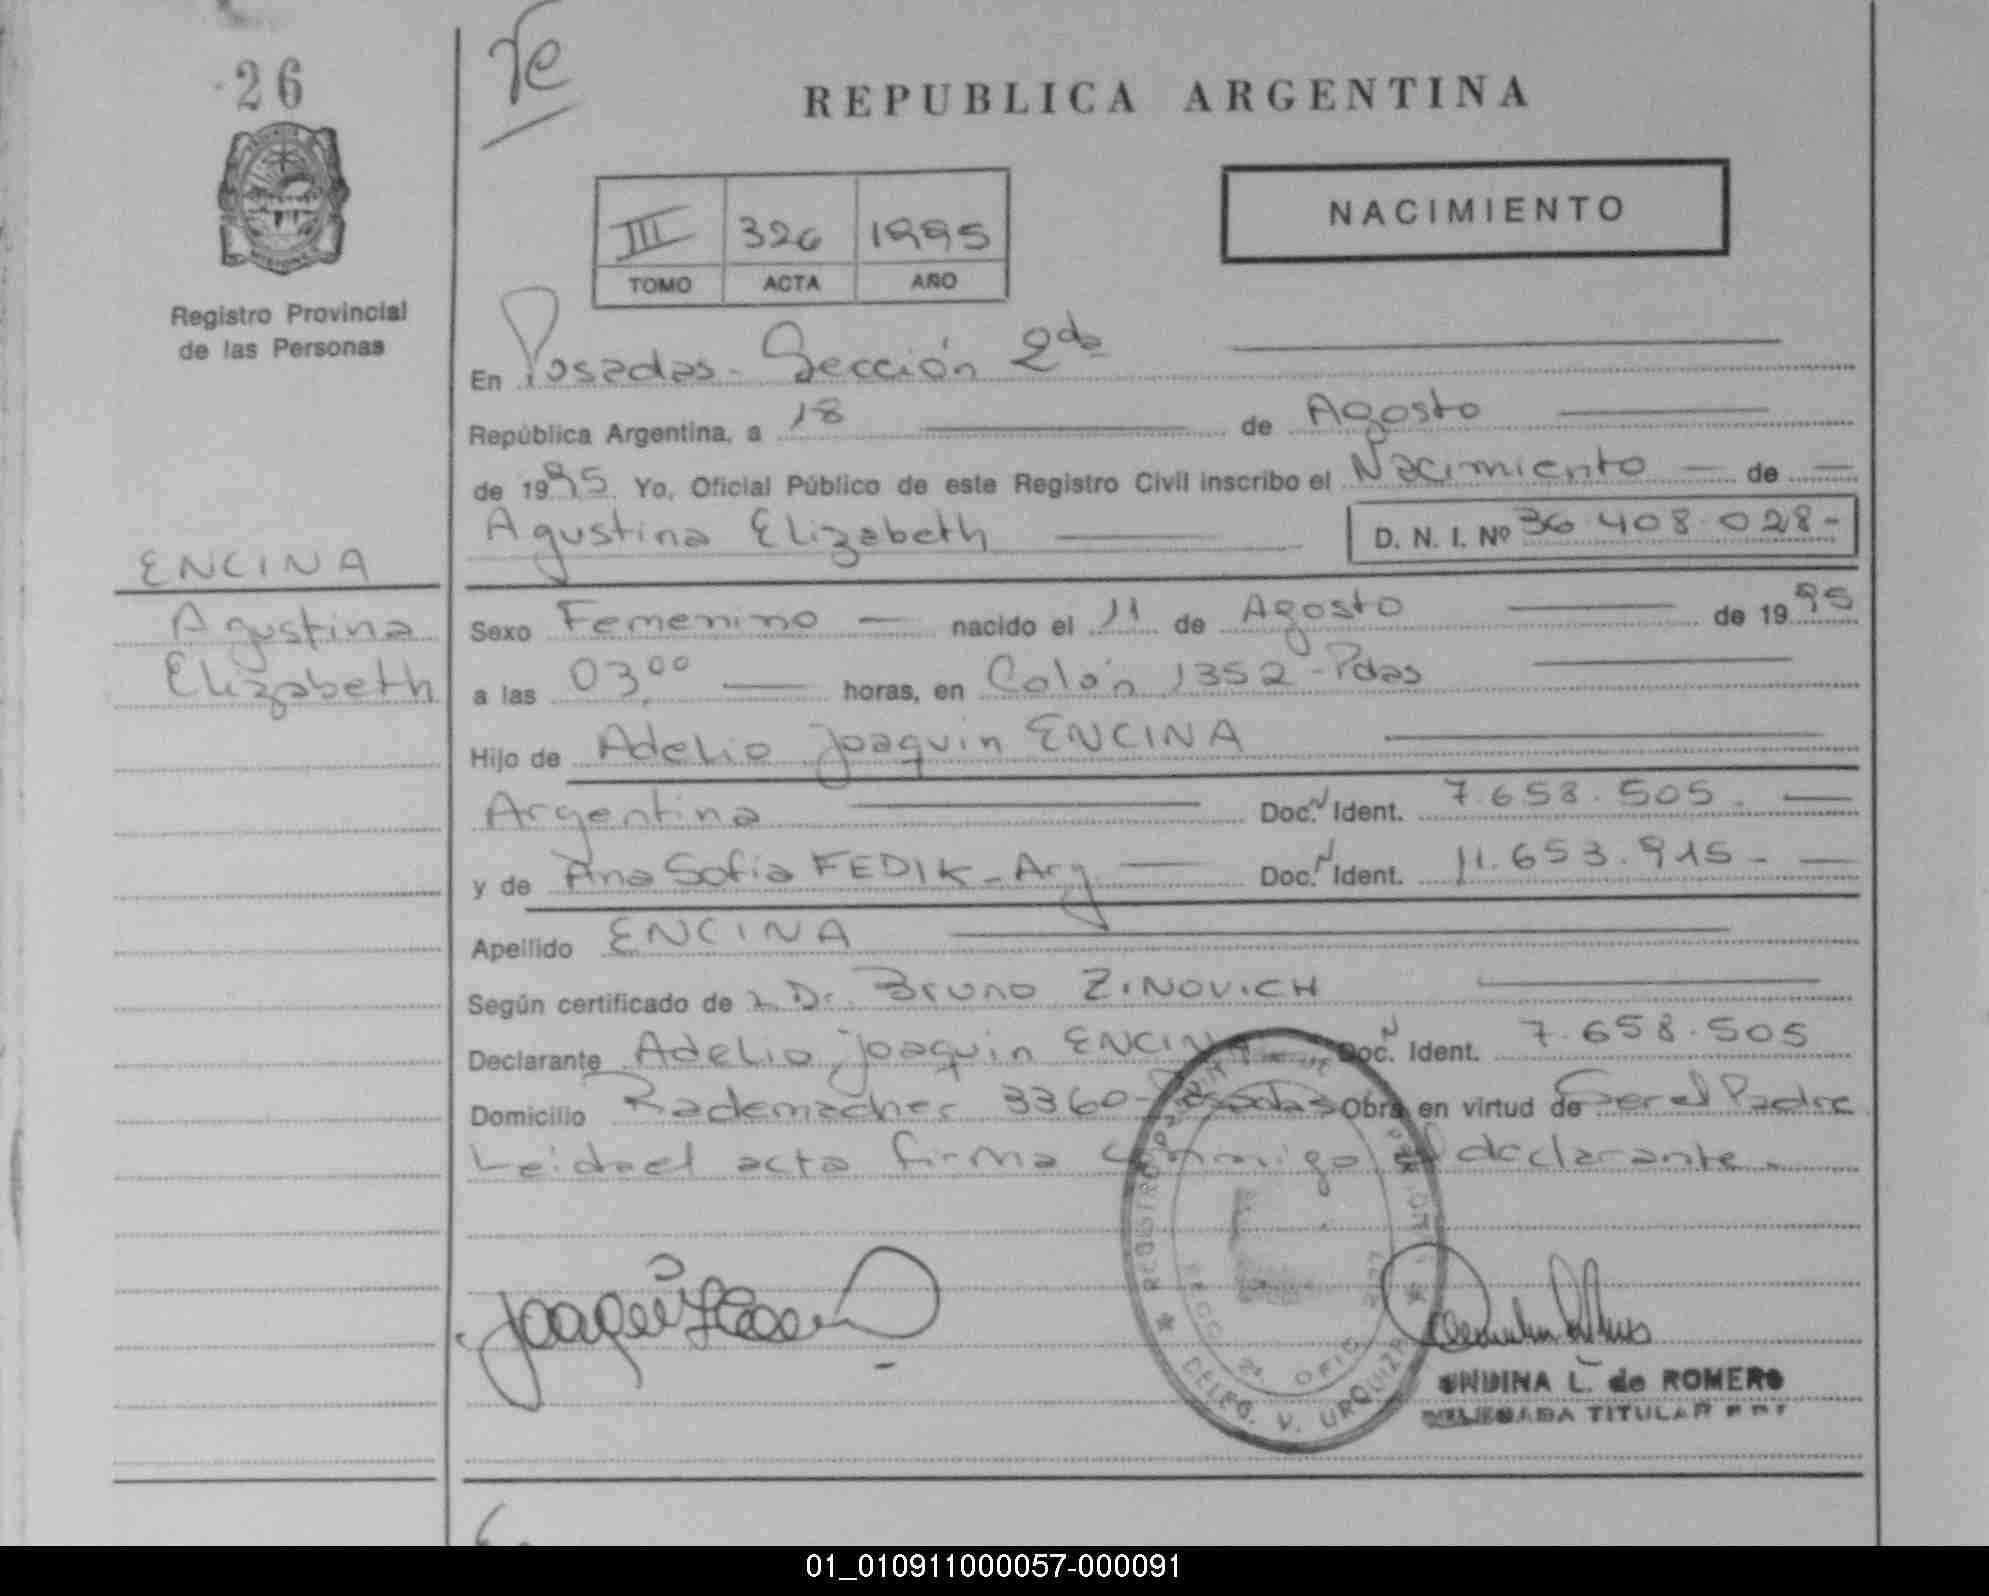 26
Te
REPUBLICA ARGENTINA
NACIMIENTO
III 326 1995
TOMO ACTA AÑO
Registro Provincial
de las Personas
En Posadas - Sección 2da
República Argentina, a 18 de Agosto
de 1995 Yo, Oficial Público de este Registro Civil inscribo el Nacimiento de
Agustina Elizabeth D. N. I. Nº 36.408.028-
ENCINA
Agustina
Elizabeth
Sexo Femenino nacido el 11 de Agosto de 1995
a las 03,00 horas, en Colón 1352 - Pdas
Hijo de Adelio Joaquin ENCINA
Argentina Doc. N Ident. 7.658.505.
y de Ana Sofia FEDIK - Arg Doc. N Ident. 11.653.915-
Apellido ENCINA
Según certificado de Dr. Bruno ZINOVICH
Declarante Adelio Joaquin ENCINA Doc. N Ident. 7.658.505
Domicilio Rademacher 3360 - Posadas Obra en virtud de Ser el Padre
Leida el acta firma conmigo el declarante.
REGISTRO
DELEG. V. URQUIZA
SECC. 2ª. OFIC.
UNDINA L. de ROMERO
DELEGADA TITULAR
01_010911000057-000091